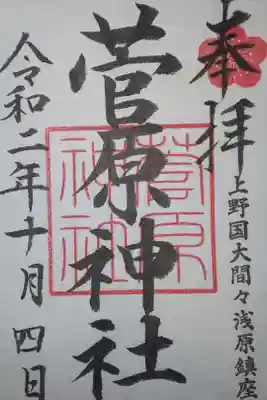 奉拝
上野国大間々浅原鎮座
菅原神社
菅原神社
令和二年十月四日